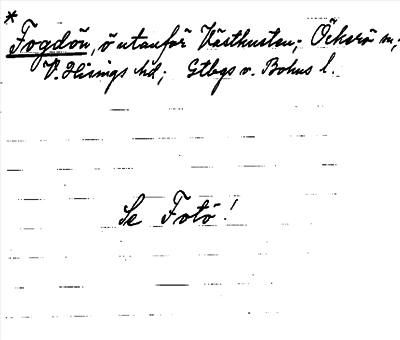 * Fogdön, ö utanför Västkusten; Öckerö sn;
V. Hisings hd; Gtbgs o. Bohus l.
Se Fotö!